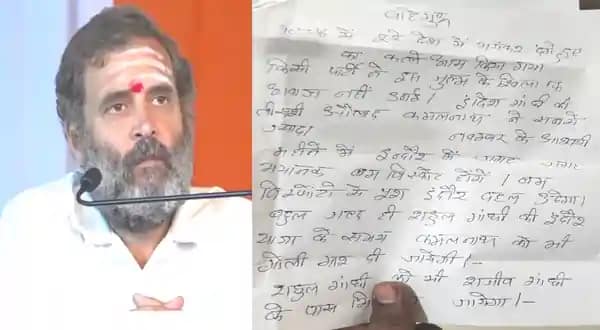 वाहे गुरु
में पूरे देश में भयंकर दंगे हुए
का कत्ले आम किया गया
किसी पार्टी ने इस जुल्म के खिलाफ
आवाज नहीं उठाई। इंदिरा गांधी की
तीसरी कमलनाथ ने सबसे
ज्यादा। नवम्बर के आखरी
महीने में इन्दौर में जगह जगह
भयानक बम विस्फोट होंगे। बम
विस्फोटों से पूरा इंदौर दहल उठेगा।
बहुत जल्द ही राहुल गांधी की इंदौर
यात्रा के समय कमलनाथ को भी
गोली मार दी जायेगी।-
राहुल गांधी को भी राजीव गांधी
के पास जायेगा।-